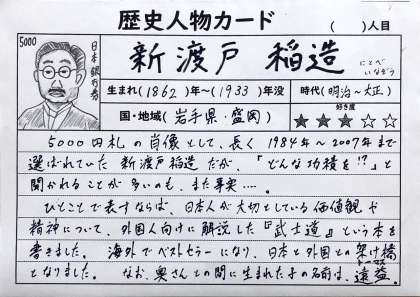 歴史人物カード ( )人目
5000
日本銀行券
新渡戸 稲造
にとべ
いなぞう
生まれ(1862)年〜(1933)年没
時代(明治〜大正)
国・地域(岩手県・盛岡)
好き度
★★★☆☆
5000円札の肖像として、長く1984年〜2007年まで
選ばれていた新渡戸稲造だが、「どんな功績を!?」と
聞かれることが多いのも、また事実…。
ひとことで表すならば、日本人が大切としている価値観や
精神について、外国人向けに解説した『武士道』という本を
書きました。海外でベストセラーになり、日本と外国との架け橋
となりました。 なお、奥さんとの間に生まれた子の名前は、遠益。
トーマス